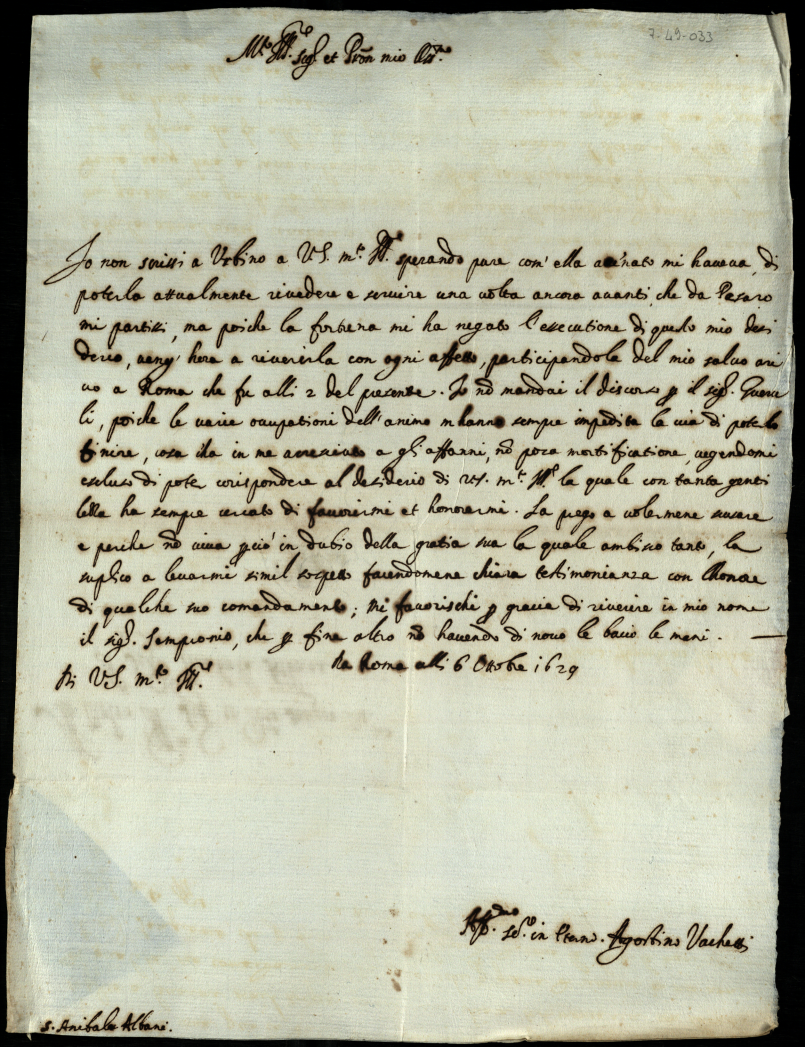 7-49-033
M.to Ill.re Sig.r et Pron mio Oss.mo
Io non scrissi a Vrbino a VS. m.to Ill.re sperando pure com' ella acenato mi haveva, di
poterla attualmente rivedere e servire una volta ancora avanti, che da Pesaro
mi partissi, ma poiche la fortuna mi ha negato l'essecutione di questo mio desi
derio, veng' hora a riverirla con ogni affetto, participandole del mio salvo ari
vo a Roma che fu alli 2 del presente. Io nō mandai il discorso p il sig.r
li, poiche le varie ocupationi dell'animo m'hanno sempre impedita la via di poterlo
finire, cosa ch'a in me acresciuto a gli affanni, nō poca mortificatione, vegendomi
escluso di poter corispondere al desiderio di VS. m.to Ill.re la quale con tanta genti
lezza ha sempre cercato di favorirmi et honorarmi. La prego a volermene scusare
e perche nō viva pciò in dubio della gratia sua la quale ambisco tanto, la
suplico a levarmi simil sospetto facendomene chiara testimonianza con l'honore
di qualche suo comandamento; Mi favorischi p gracia di riverire in mio nome
il sig.r Sempronio, che p fine altro nō havendo di novo le bacio le mani.
Da Roma alli 6 Ottobre 1629
Di VS. m.to Ill.re
Aff.mo se.re in eterno. Agostino Vachetti
S. Anibale Albani.